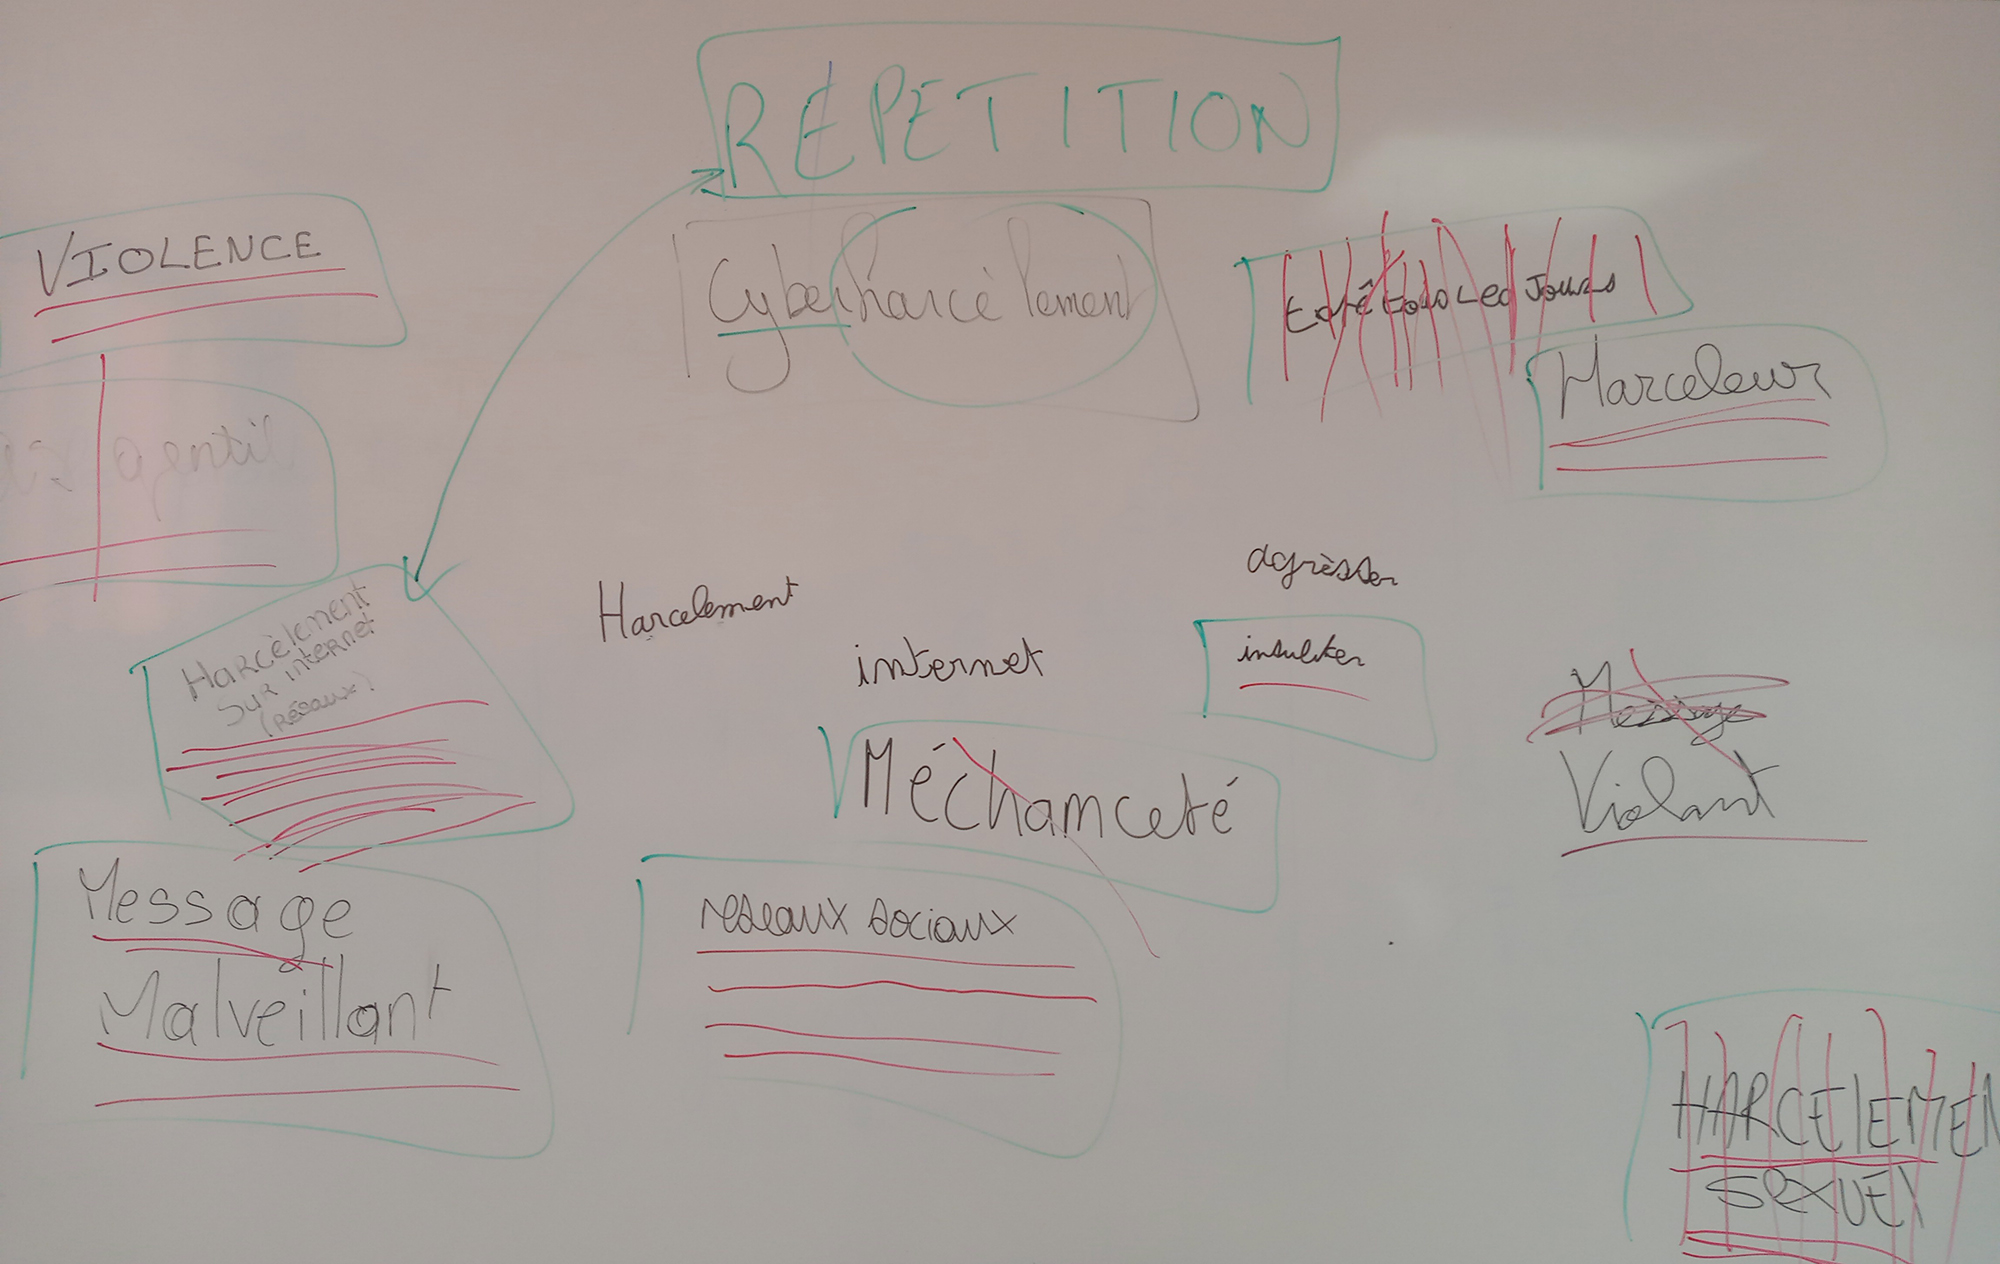 RÉPETITION
VIOLENCE
Cyberharcèlement
tous Les Jours
Harceleur
gentil
Harcèlement
sur internet
(réseaux)
Harcelement
agrèsser
internet
insulter
Message
Violant
Méchanceté
Message
Malveillant
reseaux sociaux
HARCELEMEN
SEXUEL